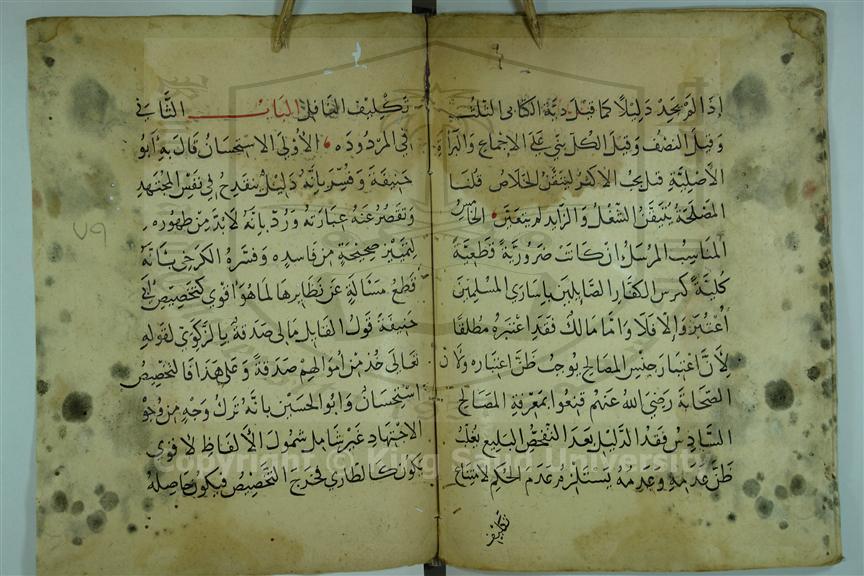 إذا لم نجد دليلا كما قيل دية الكتابي الثلث
وقيل النصف وقيل الكل بنى على الاجماع والبراة
الأصلية قيل يجب الاكثر ليتيقن الخلاص قلنا
المصلحة يتيقن الشغل والزايد لم يتيقن الخامس
المناسب المرسل ان كانت ضرورية قطعية
كلية كترس الكفار الصايلين باسارى المسلمين
اعتبر والا فلا واما مالك فقد اعتبره مطلقا
لأن اعتبار جنس المصالح يوجب ظن اعتباره ولان
الصحابة رضي الله عنهم قنعوا بمعرفة المصالح
السادس فقد الدليل بعد التفحص البليغ يغلب
ظن عدمه وعدمه يستلزم عدم الحكم لامتناع
تكليف
تكليف الغافل الباب الثاني
في المردودة الأولى الاستحسان قال به ابو
حنيفة وفسر بانه دليل ينقدح في نفس المجتهد
وتقصر عنه عبارته ورد بانه لا بد من ظهوره
ليتميز صحيحه من فاسده وفسره الكرخي بانه
قطع مسئلة عن نظايرها لما هو اقوى كتخصيص ابي
حنيفة قول القايل مالي صدقة بالزكوي لقوله
تعالى خذ من اموالهم صدقة وعلى هذا فالتخصيص
استحسان وابو الحسين بانه ترك وجه من وجوه
الاجتهاد غير شامل شمول الألفاظ لأقوى
يكون كالطاري فخرج التخصيص فيكون حاصله
٧٩
Copyright © King Saud University